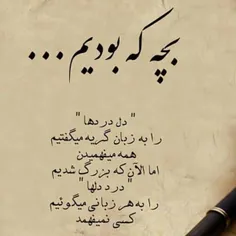 بچه که بودیم ...
"دل درد ها"
را به زبان گریه میگفتیم
همه میفهمیدن
اما الآن که بزرگ شدیم
"درد دلها"
را به هر زبانی میگوئیم
کسی نمیفهمد